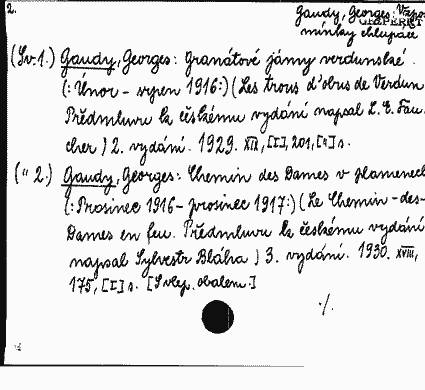 2.
Gaudy, Georges: Vzpo
mínky chlupáče
(Sv. 1.) Gaudy, Georges: Granátové jámy verdunské.
(: Únor - srpen 1916:) (Les trous d'obus de Verdun
Předmluvu k českému vydání napsal L. E. Fau.
cher) 2. vydání. 1929. XIX, [I], 201, [4] s.
(" 2.) Gaudy, Georges: Chemin des Dames v plamenech
(: Prosinec 1916 - prosinec 1917:) (Le Chemin-des-
Dames en feu. Předmluvu k českému vydání
napsal Sylvestr Bláha) 3. vydání. 1930. XVIII,
175, [I] s. [S vlep. obalem.]
./.